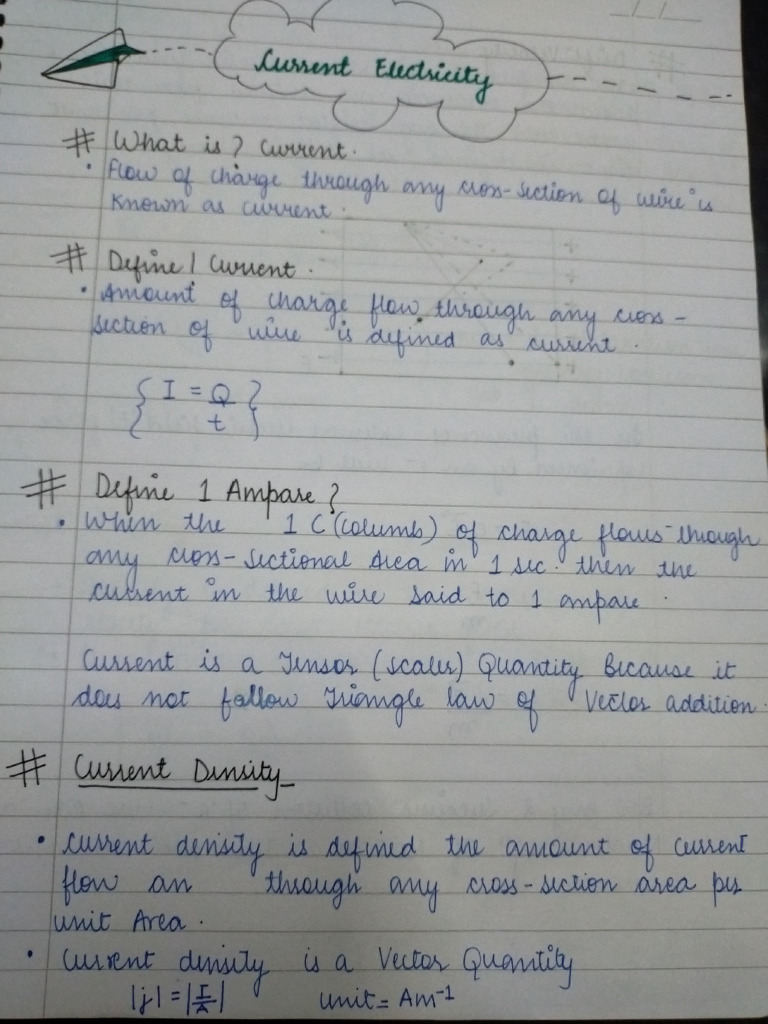 Current Electricity
# What is ? Current.
• Flow of charge through any cross-section of wire is
known as current.
# Define / Current.
• Amount of charge flow through any cross-
section of wire is defined as current.
{ I = Q/t }
# Define 1 Ampare ?
• When the 1 C (columb) of charge flows through
any cross-sectional Area in 1 sec. then the
current in the wire said to 1 ampare.
Current is a Tensor (scaler) Quantity Because it
does not follow Triangle law of Vector addition.
# Current Density
• Current density is defined the amount of current
flow an through any cross-section area per
unit Area.
• Current density is a Vector Quantity
|j| = |I/A| unit = Am⁻¹